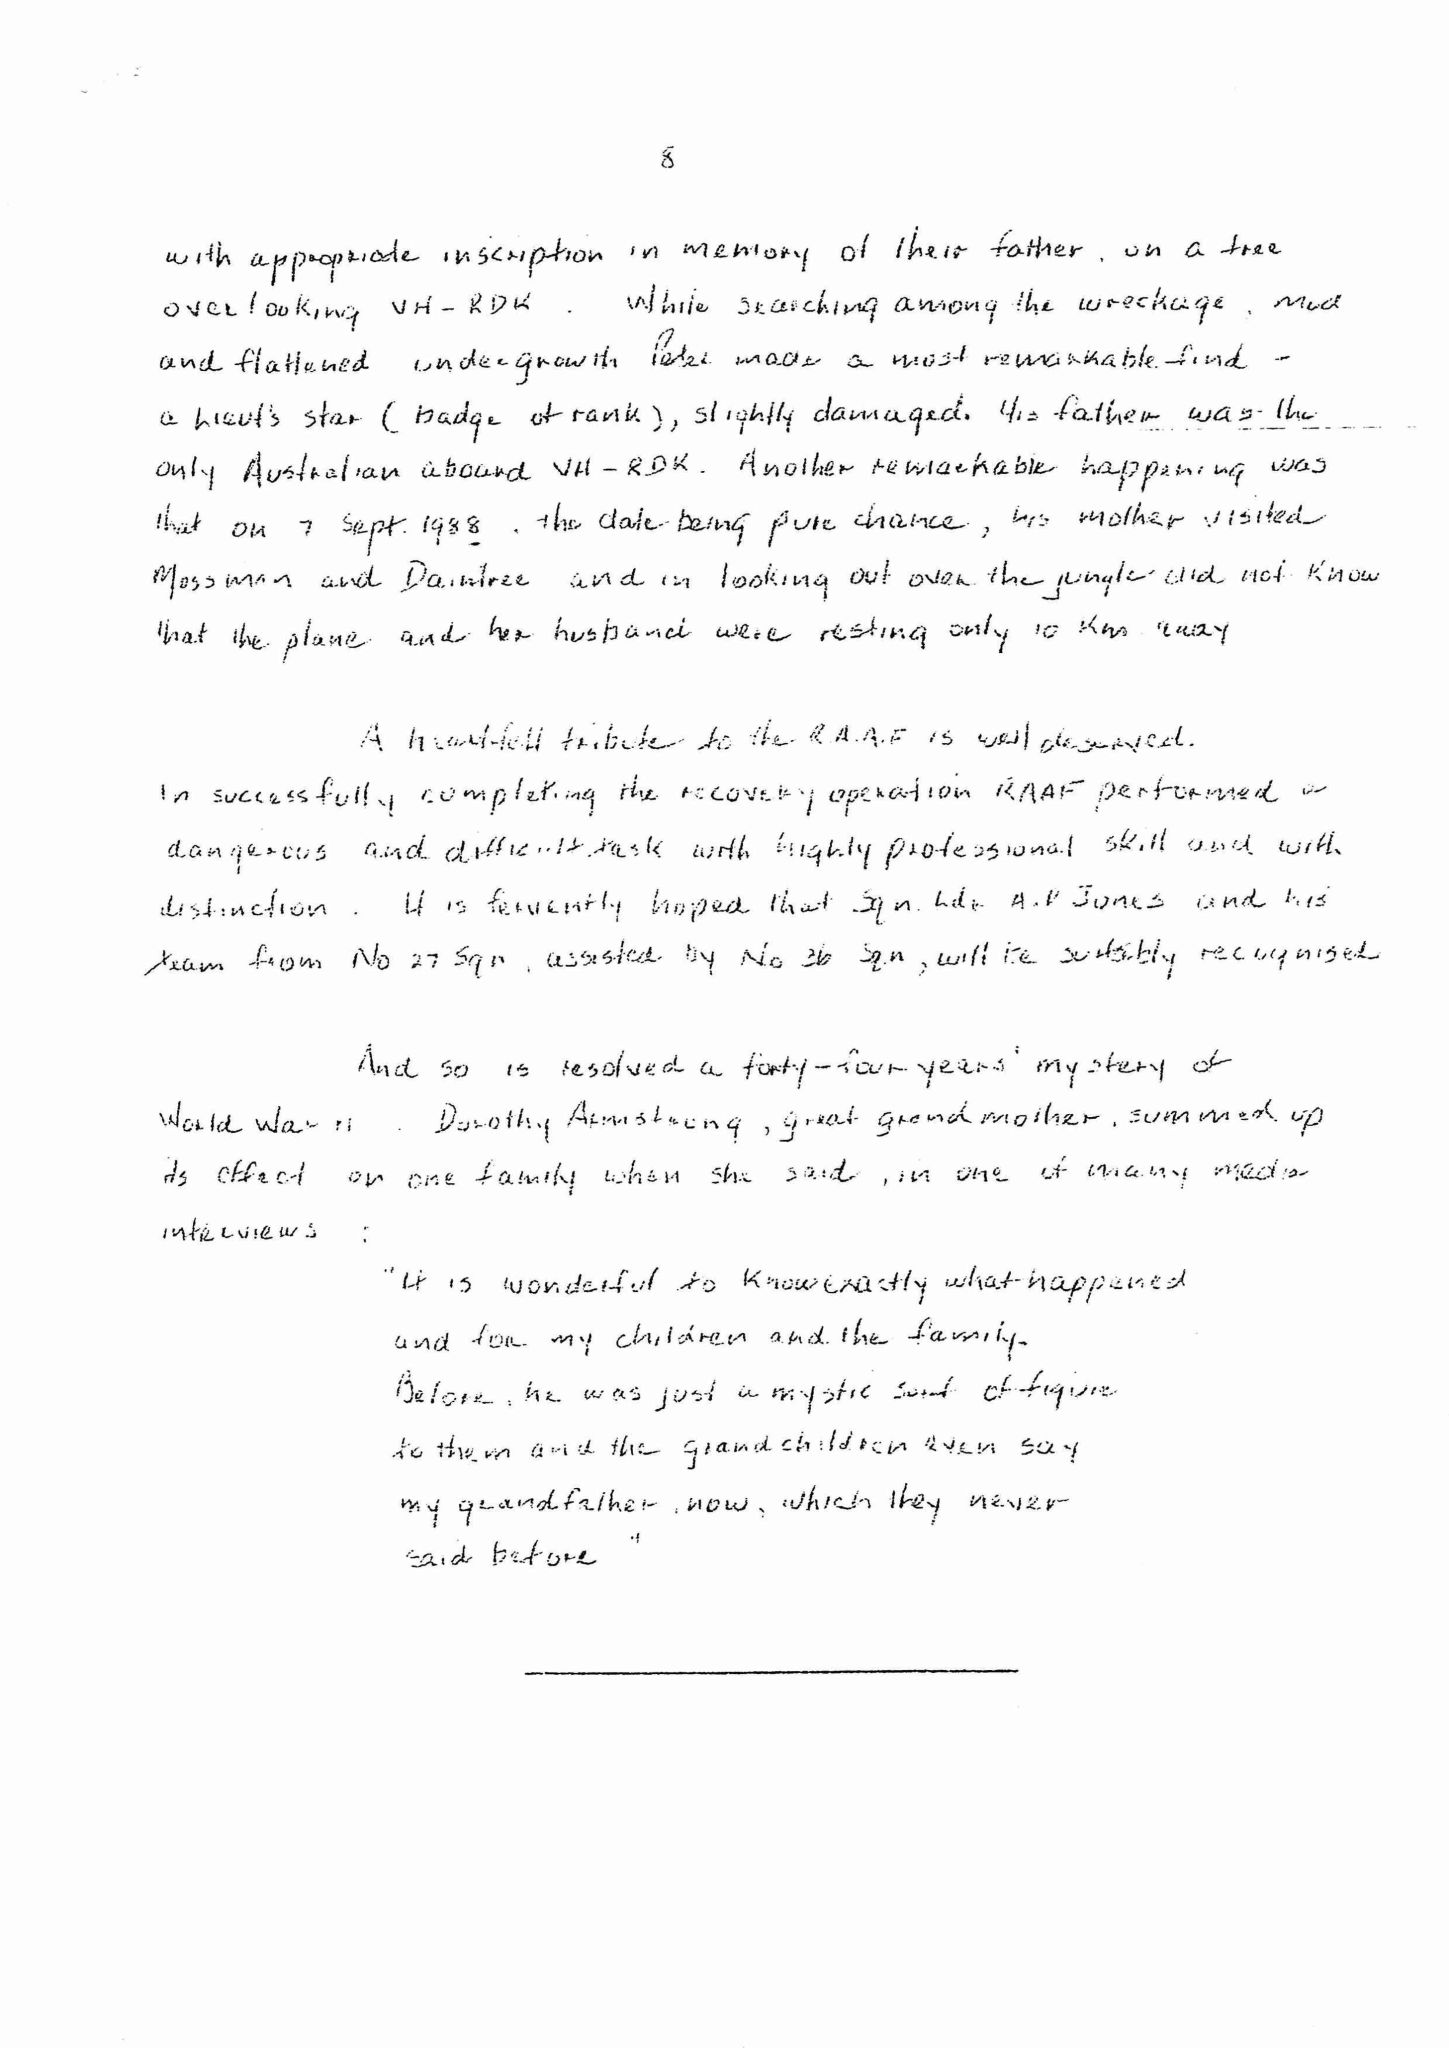 8
with appropriate inscription in memory of their father, on a tree
overlooking VH-RDK. While searching among the wreckage, mud
and flattened undergrowth Peter made a most remarkable find -
a Lieut's star (badge of rank), slightly damaged. His father was the
only Australian aboard VH-RDK. Another remarkable happening was
that on 7 Sept. 1988, the date being pure chance, his mother visited
Mossman and Daintree and in looking out over the jungle did not know
that the plane and her husband were resting only 10 Km away
A heartfelt tribute to the R.A.A.F is well deserved.
In successfully completing the recovery operation RAAF performed a
dangerous and difficult task with highly professional skill and with
distinction. It is fervently hoped that Sqn. Ldr Jones and his
team from No 27 Sqn, assisted by No Sqn, will be suitably recognised
And so is resolved a forty-four years' mystery of
World War II. Dorothy Armstrong, great grandmother, summed up
its effect on one family when she said, in one of many media
interviews :
"It is wonderful to know exactly what happened
and for my children and the family.
Before, he was just a mystic sort of figure
to them and the grandchildren even say
my grandfather, now, which they never
said before"